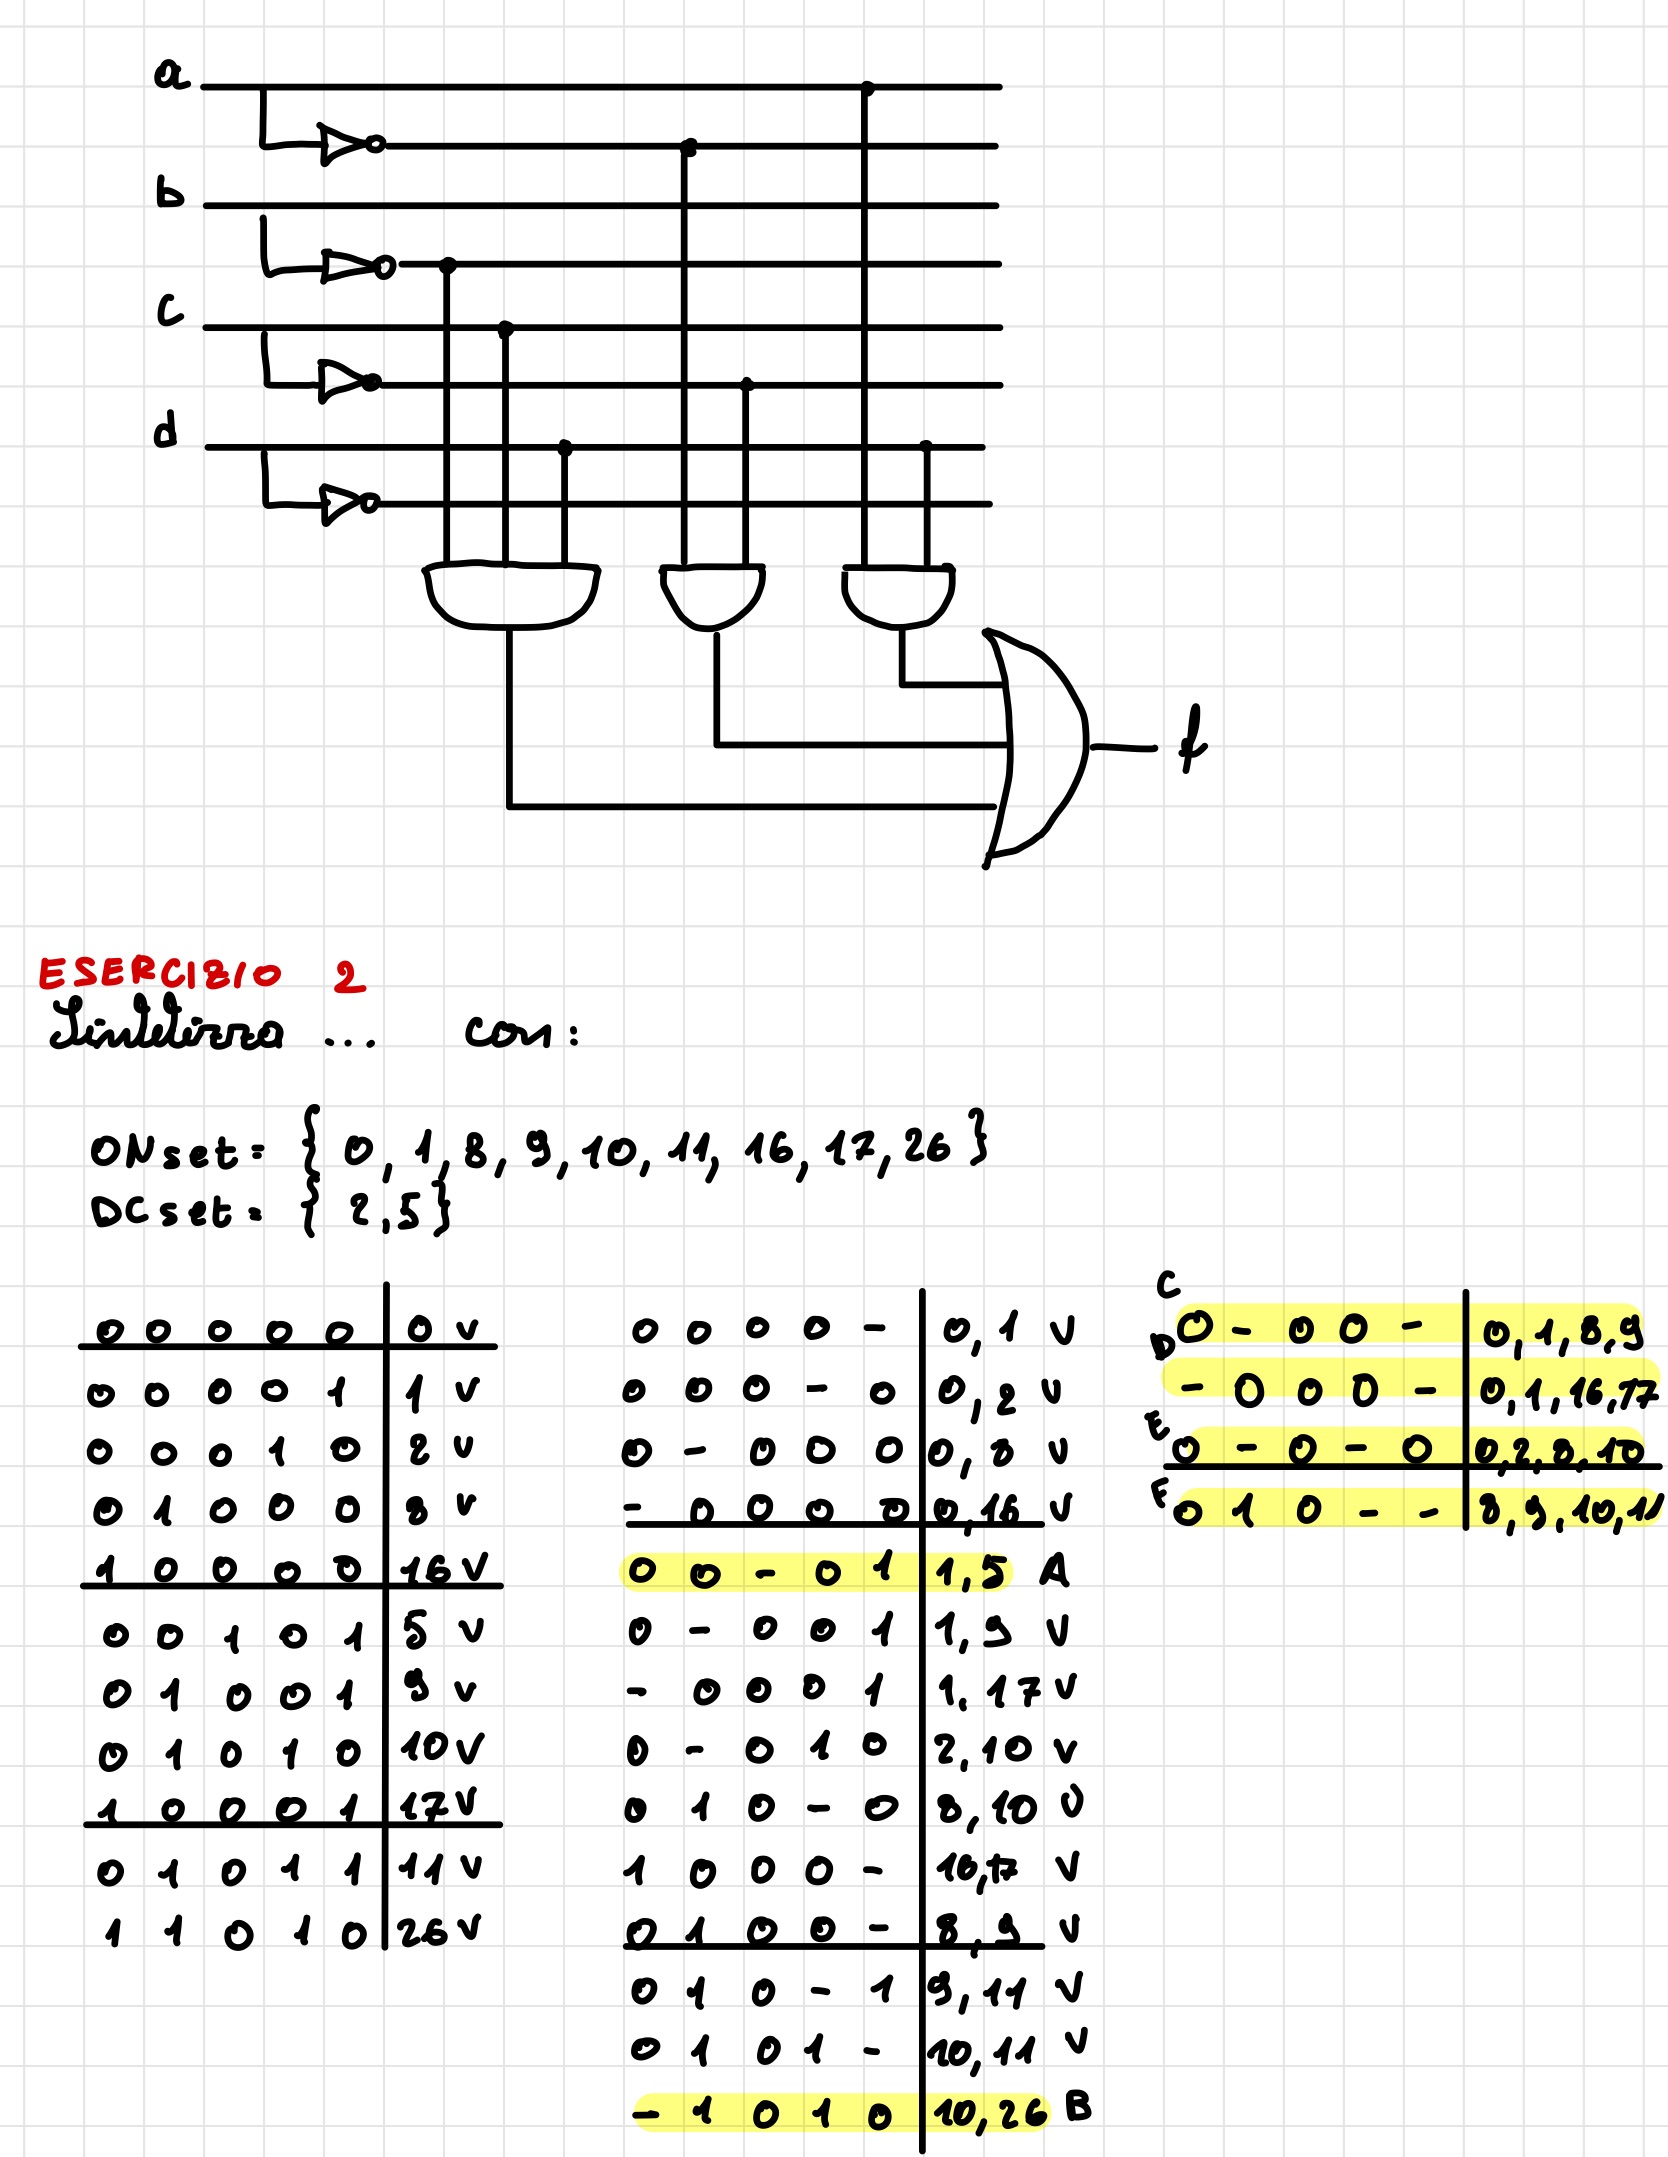 a
b
c
d
f
ESERCIZIO 2
Sintetizza ... con:
ONset = { 0, 1, 8, 9, 10, 11, 16, 17, 26 }
DCset = { 2, 5 }
0 0 0 0 0 | 0 v
0 0 0 0 1 | 1 v
0 0 0 1 0 | 2 v
0 1 0 0 0 | 8 v
1 0 0 0 0 | 16 v
0 0 1 0 1 | 5 v
0 1 0 0 1 | 9 v
0 1 0 1 0 | 10 v
1 0 0 0 1 | 17 v
0 1 0 1 1 | 11 v
1 1 0 1 0 | 26 v
0 0 0 0 - | 0, 1 v
0 0 0 - 0 | 0, 2 v
0 - 0 0 0 | 0, 8 v
- 0 0 0 0 | 0, 16 v
0 0 - 0 1 | 1, 5 A
0 - 0 0 1 | 1, 9 v
- 0 0 0 1 | 1, 17 v
0 - 0 1 0 | 2, 10 v
0 1 0 - 0 | 8, 10 v
1 0 0 0 - | 16, 17 v
0 1 0 0 - | 8, 9 v
0 1 0 - 1 | 9, 11 v
0 1 0 1 - | 10, 11 v
- 1 0 1 0 | 10, 26 B
C 0 - 0 0 - | 0, 1, 8, 9
D - 0 0 0 - | 0, 1, 16, 17
E 0 - 0 - 0 | 0, 2, 8, 10
F 0 1 0 - - | 8, 9, 10, 11